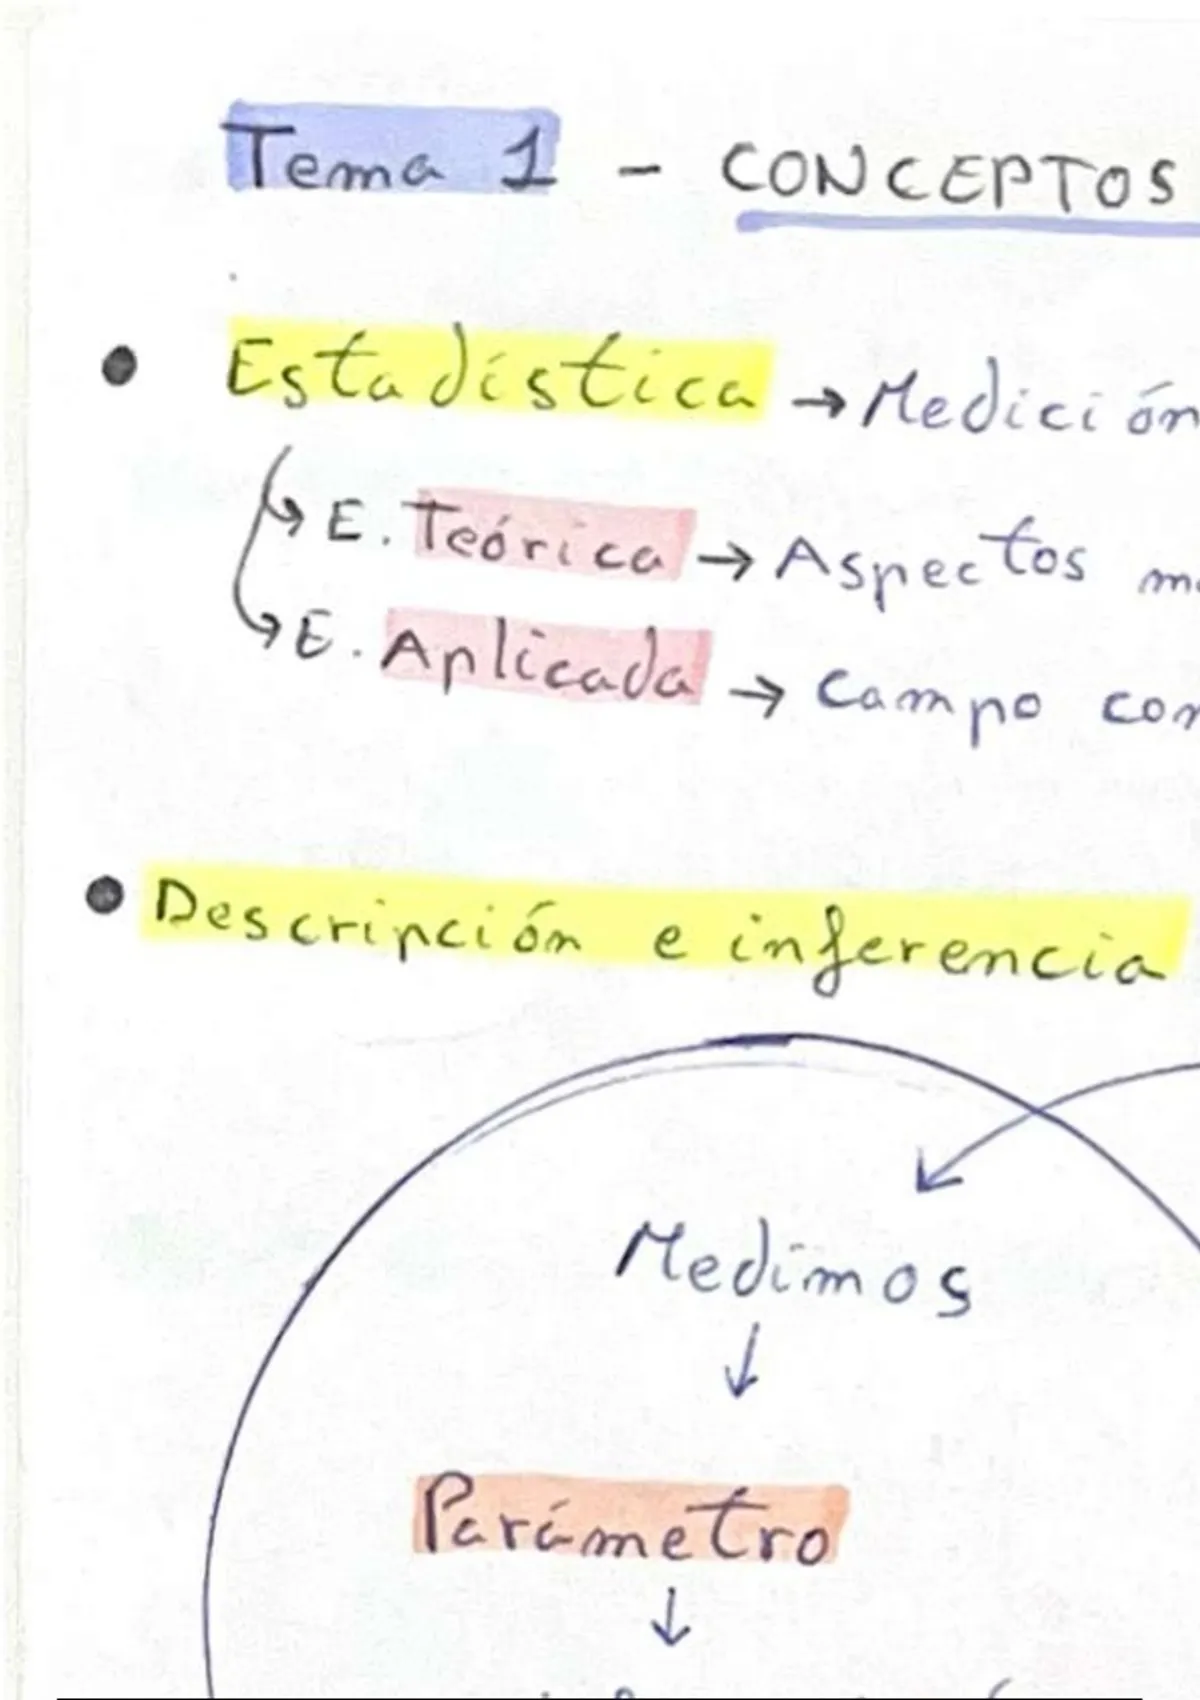 Tema 1 - CONCEPTOS
• Estadística → Medición
↳ E. Teórica → Aspectos
↳ E. Aplicada → Campo
• Descripción e inferencia
Medimos
↓
Parámetro
↓